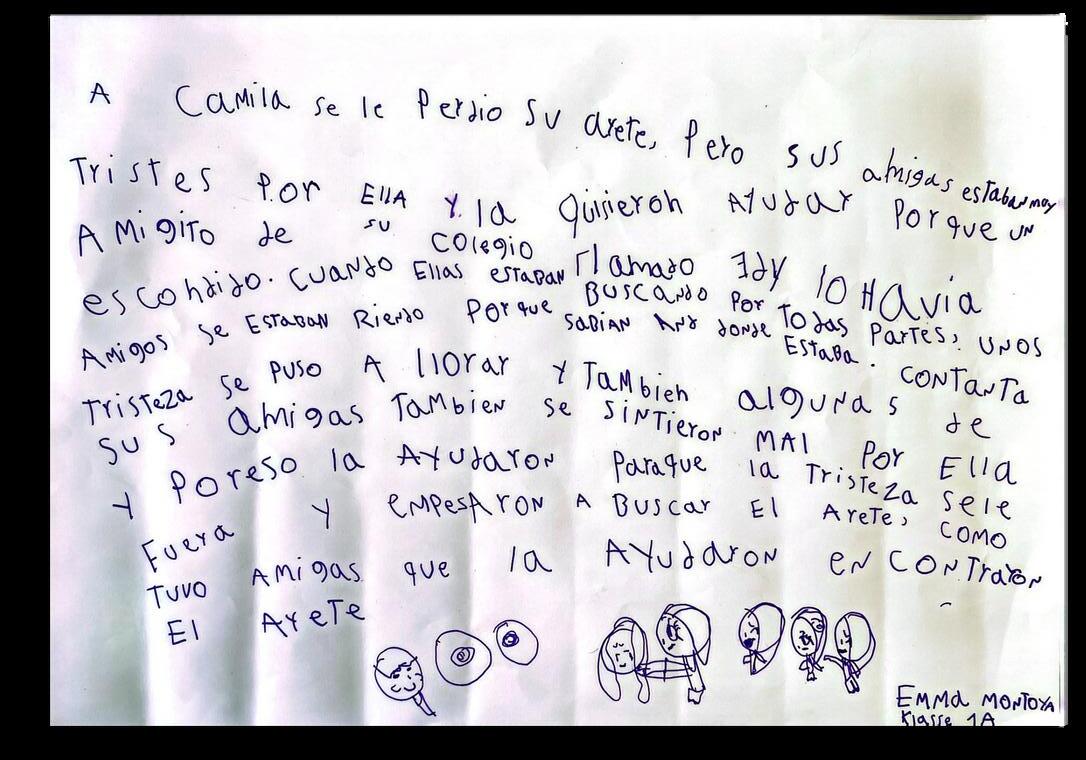 A Camila se le Perdio su arete, Pero sus amigas estaban muy
Tristes Por Ella y la quisieron Ayudar Porque un
Amigito de su colegio llamado Edy lo Havia
escondido. Cuando Ellas estaban Buscando Por Todas Partes, unos
Amigos se Estaban Riendo Porque sabian donde Estaba. contanta
Tristeza se puso A llorar y Tambien algunas de
sus amigas Tambien se sintieron mal Por Ella
y Poreso la Ayudaron Paraque la Tristeza sele
Fuera y empesaron A Buscar El Arete, como
Tuvo Amigas que la Ayudaron encontraron
El Arete
Emma Montoya
Klasse 1A